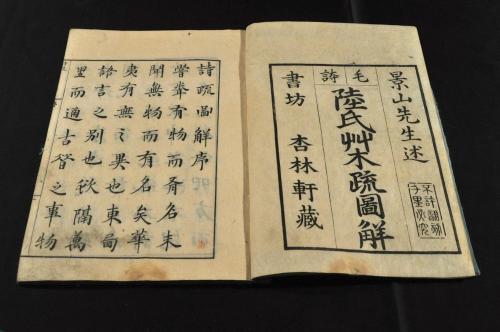 景山先生述
毛詩
陸氏艸木疏圖解
書坊 杏林軒藏
不許翻刻
千里必究
詩疏圖解序
嘗有物而有名未
聞無物而有名矣華
夷有無之異也東
語言之別也欲隔萬
里而通古昔之事物